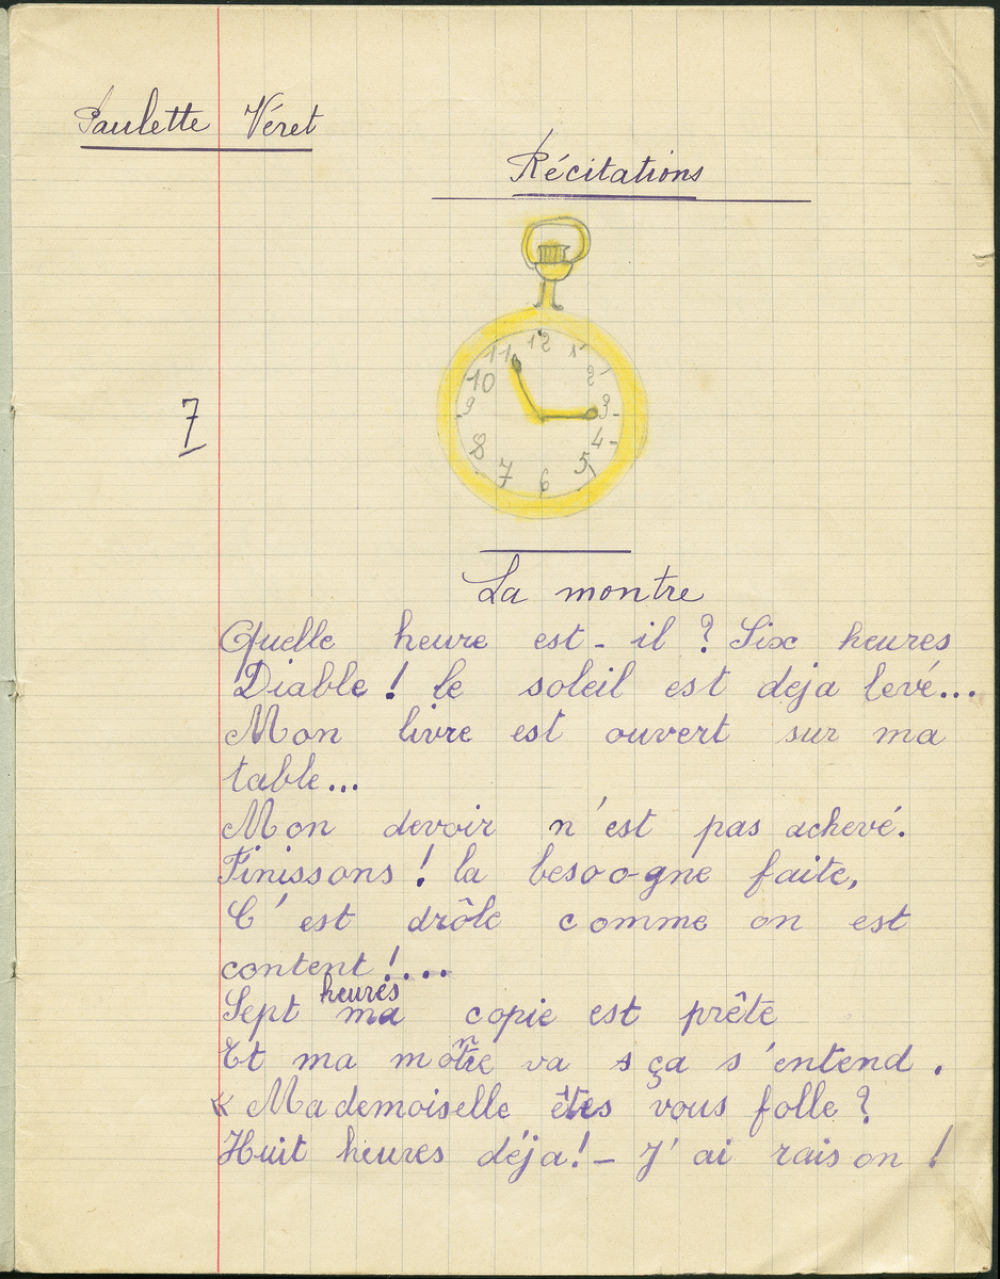 Paulette Véret
Récitations
12
11 1
10 2
9 3
8 4
7 5
6
7
La montre
Quelle heure est-il ? Six heures
Diable ! le soleil est deja levé...
Mon livre est ouvert sur ma
table...
Mon devoir n'est pas achevé.
Finissons ! la besoogne faite,
C'est drôle comme on est
content !....
heures
Sept ma copie est prête
n
Et ma motre va s ça s'entend .
« Mademoiselle êtes vous folle ?
Huit heures déja! – J'ai raison !